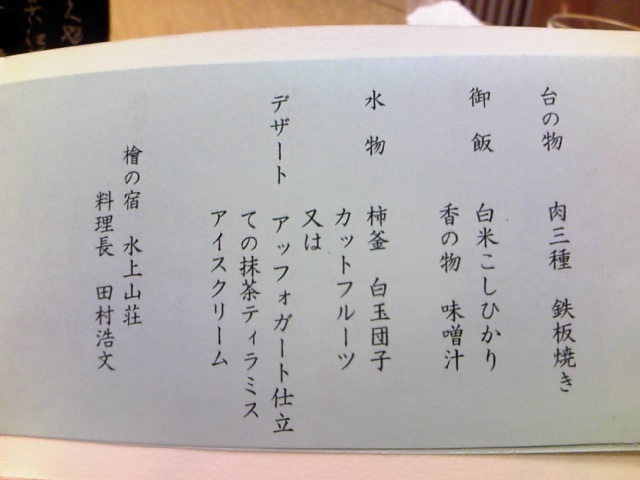 台の物　肉三種　鉄板焼き
御飯　白米こしひかり
香の物　味噌汁
水物　柿釜　白玉団子
カットフルーツ
又は
デザート　アッフォガート仕立
ての抹茶ティラミス
アイスクリーム
檜の宿　水上山荘
料理長　田村浩文